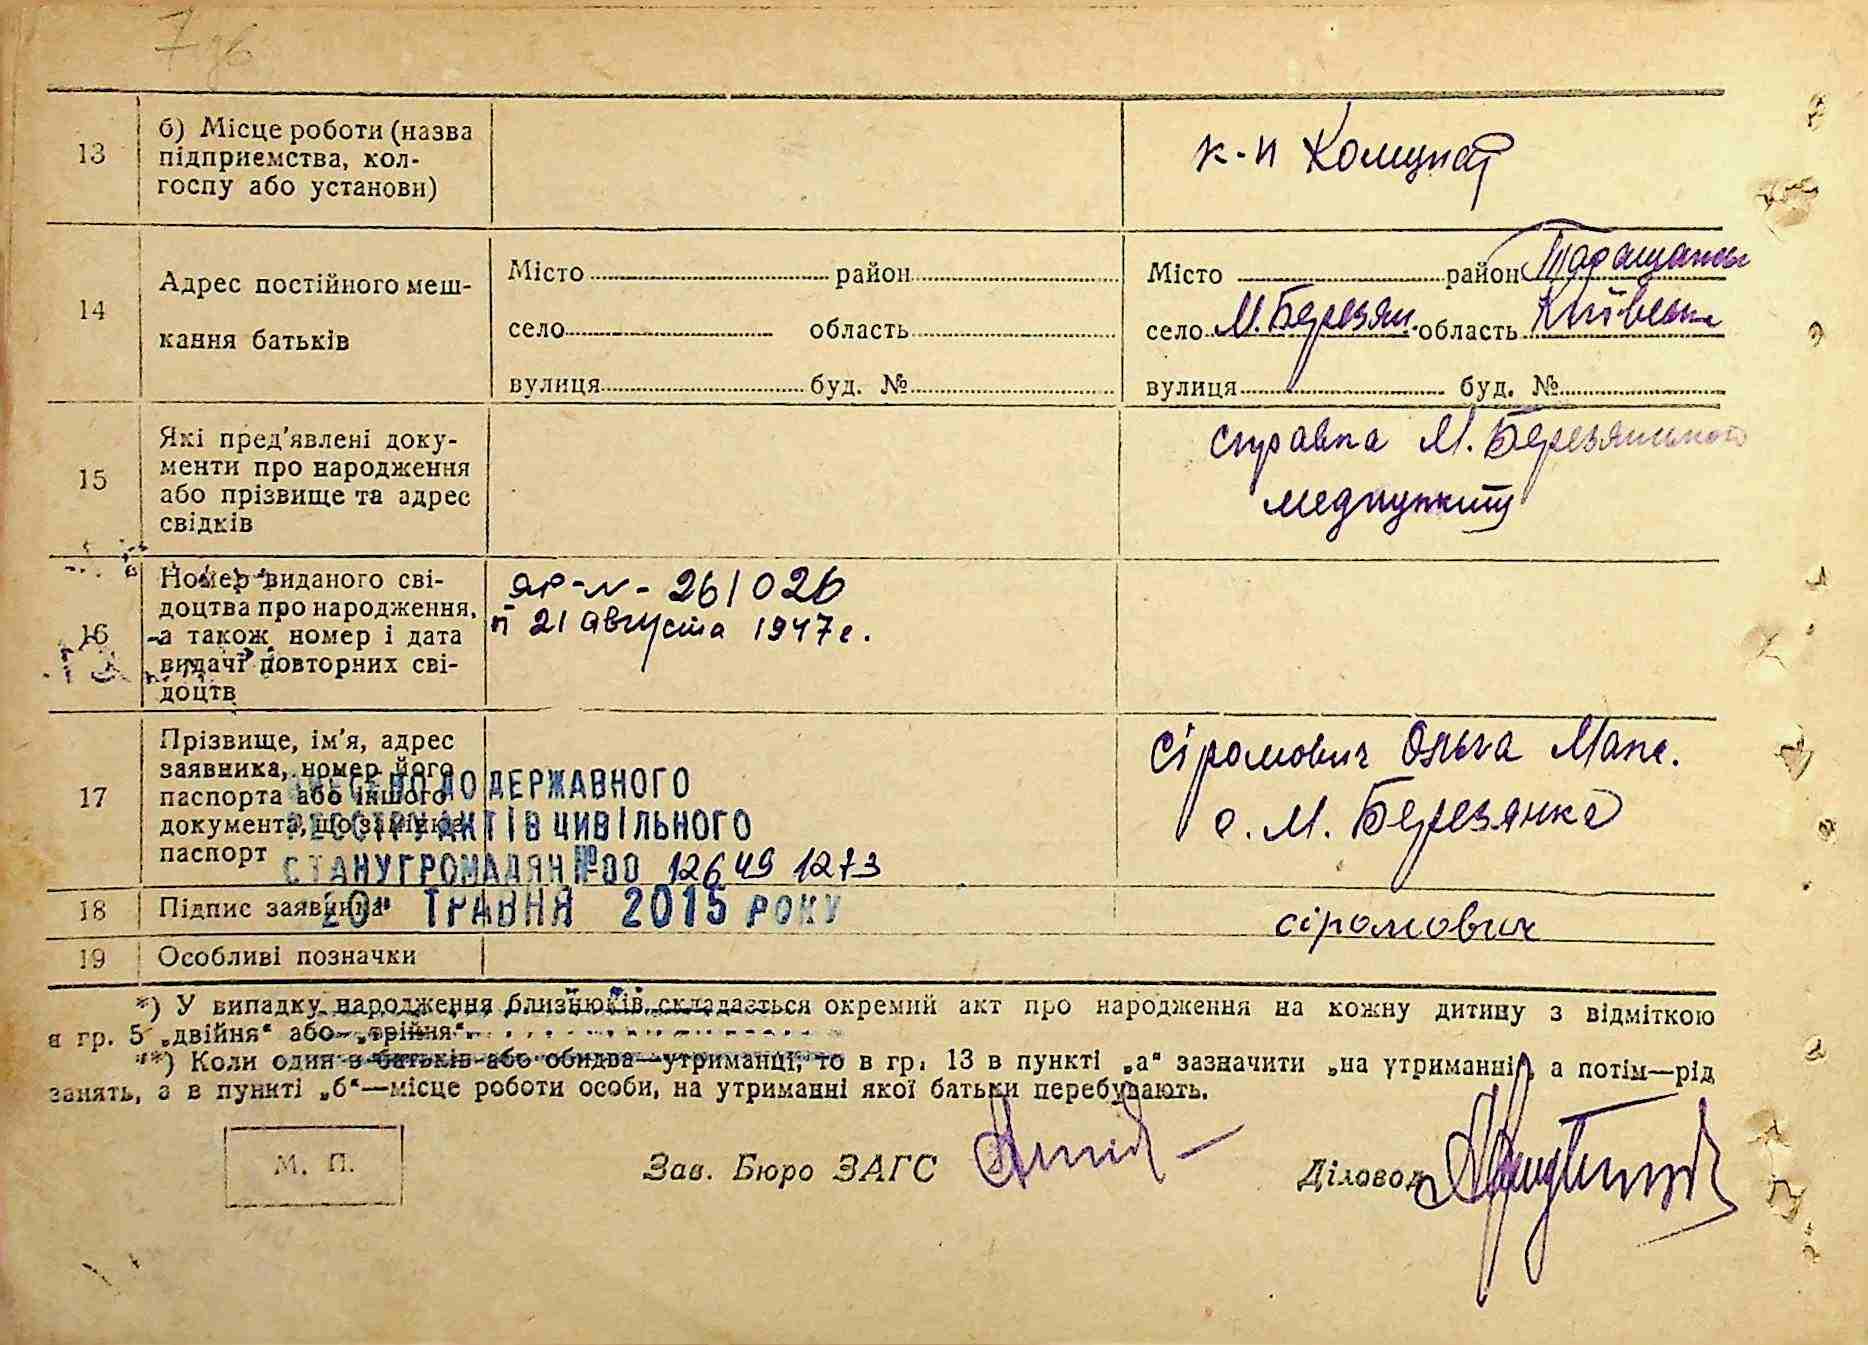 13
б) Місце роботи (назва
підприємства, кол-
госпу або установи)
к-п Комунар
14
Адрес постійного меш-
кання батьків
Місто район
село область
вулиця буд. №
Місто район Таращанськ
село М. Березян. область Київська
вулиця буд. №
15
Які пред'явлені доку-
менти про народження
або прізвище та адрес
свідків
справка М. Березянського
медпункту
16
Номер виданого сві-
доцтва про народження,
а також номер і дата
видачі повторних сві-
доцтв
261026
21 августа 1947 г.
17
Прізвище, ім'я, адрес
заявника, номер його
паспорта або іншого
документа, що заміняє
паспорт
Сіромович Ольга Макс.
с. М. Березянка
ВНЕСЕНО ДО ДЕРЖАВНОГО
РЕЄСТРУ АКТІВ ЦИВІЛЬНОГО
СТАНУ ГРОМАДЯН № 00 12649 1273
"20" ТРАВНЯ 2015 РОКУ
18
Підпис заявника
сіромович
19
Особливі позначки
*) У випадку народження близнюків складається окремий акт про народження на кожну дитину з відміткою
в гр. 5 „двійня“ або „трійня“.
**) Коли один з батьків або обидва—утриманці, то в гр. 13 в пункті „а“ зазначити „на утриманні“, а потім—рід
занять, а в пункті „б“—місце роботи особи, на утриманні якої батьки перебувають.
М. П.
Зав. Бюро ЗАГС
Діловод